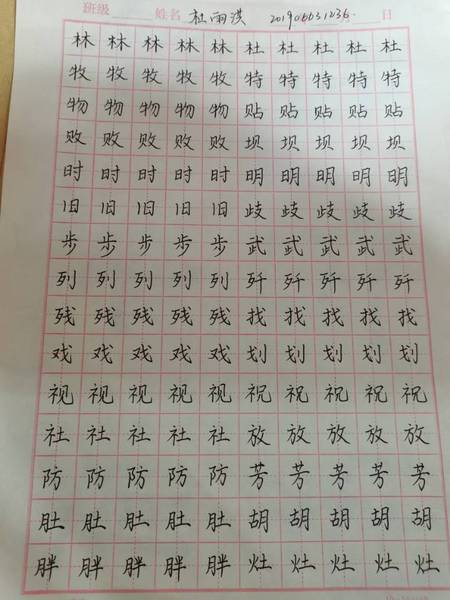 班级 姓名 杜雨洪 201906631236. 日
林林林林林杜杜杜杜杜
牧牧牧牧牧特特特特特
物物物物物贴贴贴贴贴
败败败败败坝坝坝坝坝
时时时时时明明明明明
旧旧旧旧旧歧歧歧歧歧
步步步步步武武武武武
列列列列列歼歼歼歼歼
残残残残残找找找找找
戏戏戏戏戏划划划划划
视视视视视祝祝祝祝祝
社社社社社放放放放放
防防防防防芳芳芳芳芳
肚肚肚肚肚胡胡胡胡胡
胖胖胖胖胖灶灶灶灶灶